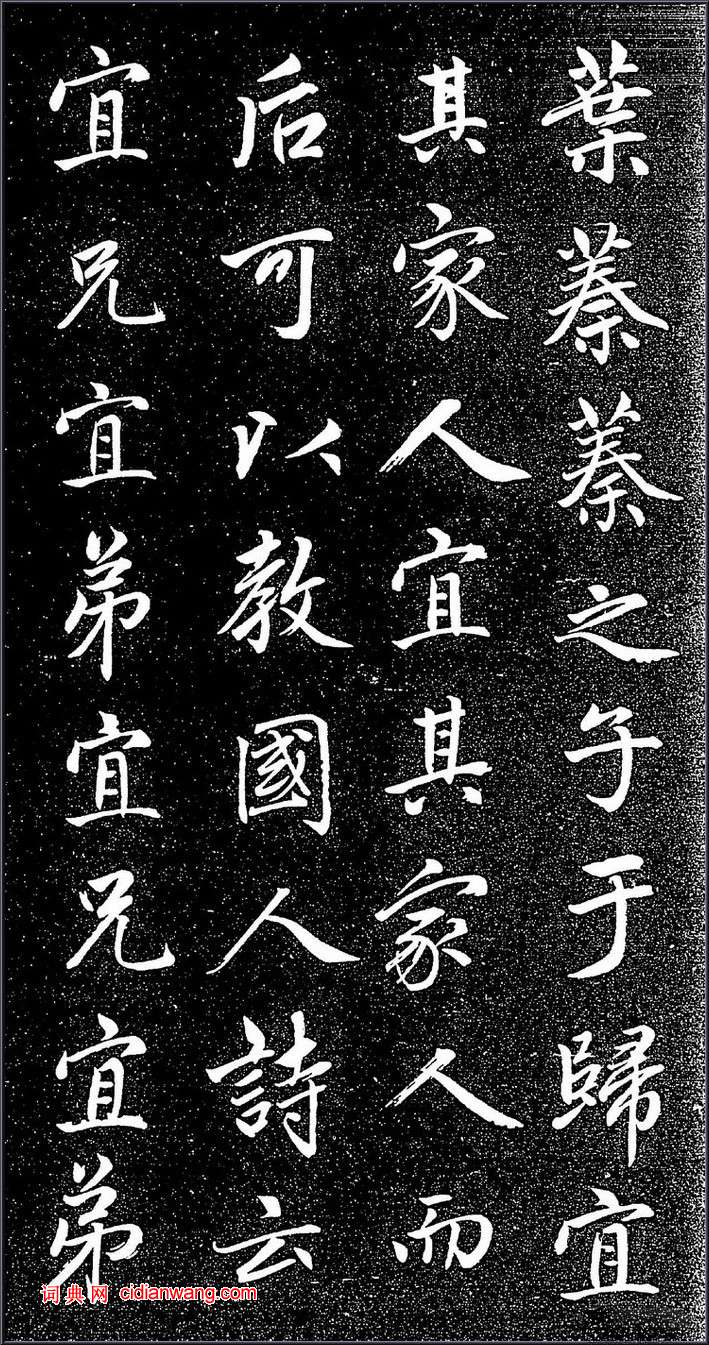 葉蓁蓁之子于歸宜
其家人宜其家人而
后可以教國人詩云
宜兄宜弟宜兄宜弟
词典网 cidianwang.com